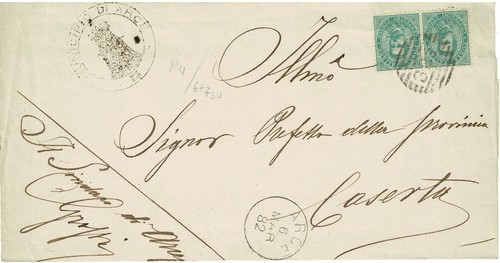 DI ARCE
P4
6+750
Illmo
Signor Prefetto della Provincia
Caserta
Il Sindaco di Arce
Grossi
ARCE
6
MAR
82